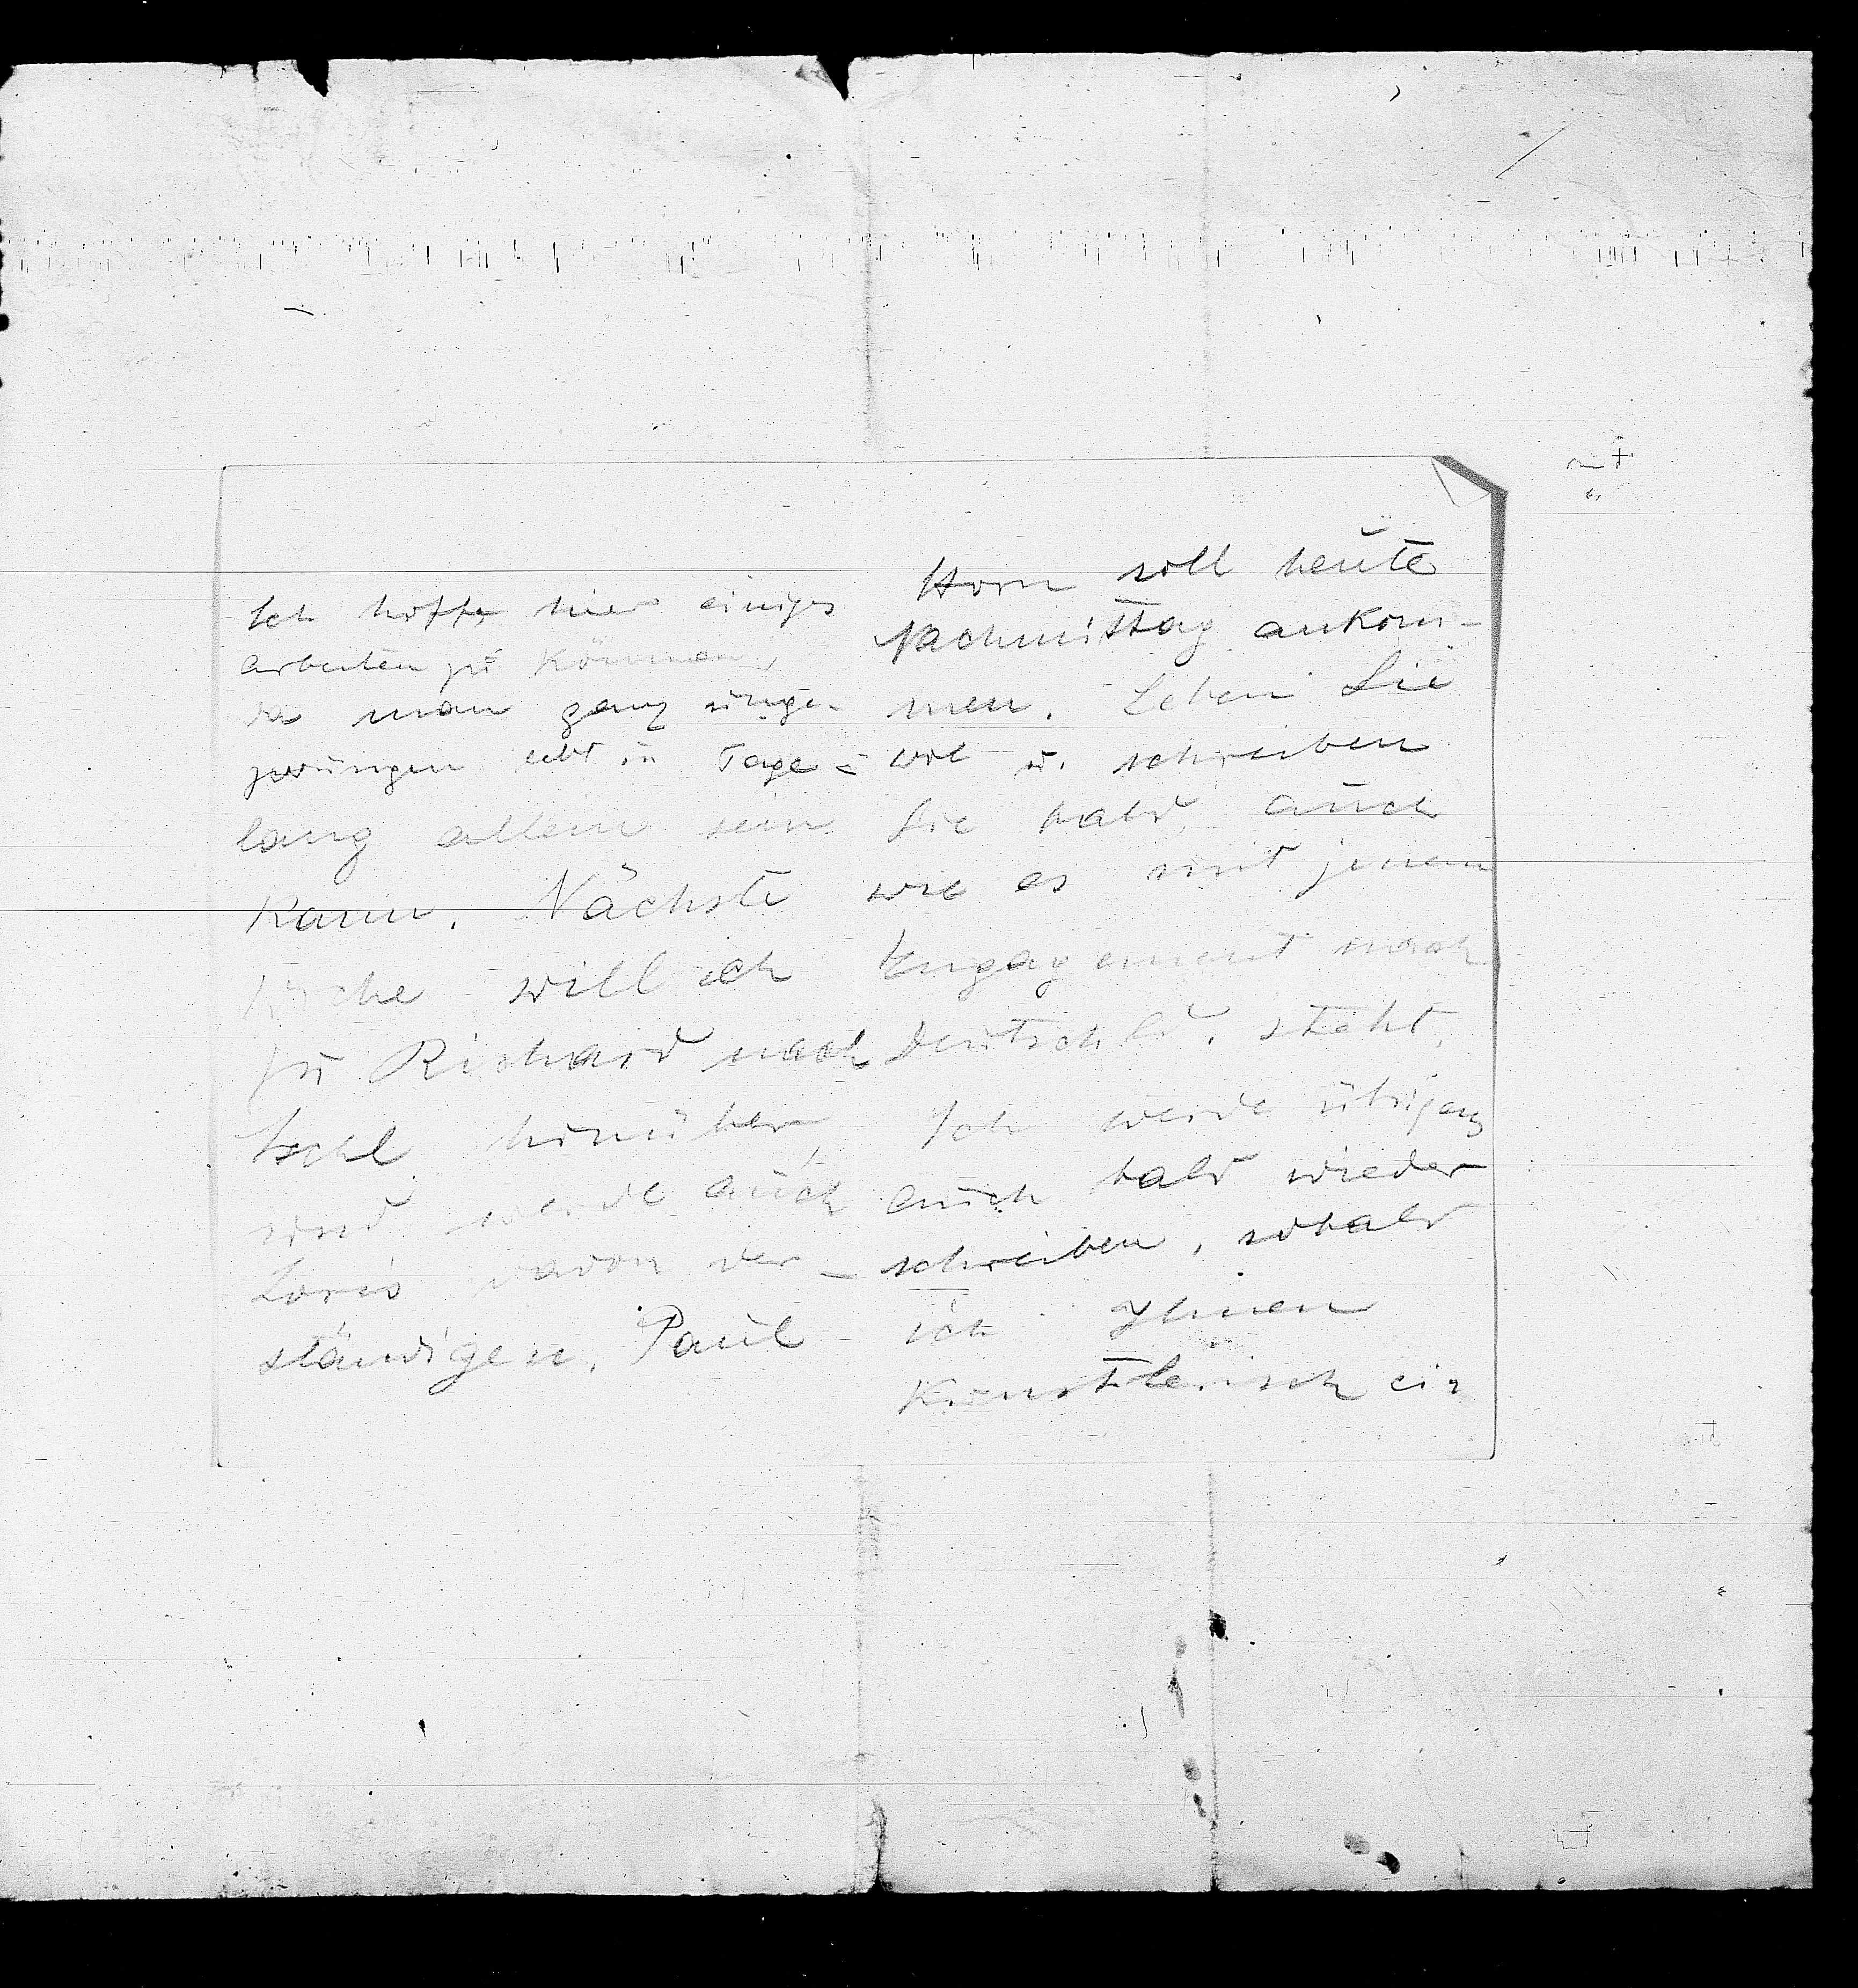 Ich hoffe hier einiges
arbeiten zu können,
da man ganz unge-
zwungen lebt u Tage=
lang allein sein
kann. Nächste
Woche will ich
zu Richard nach
Ischl hinüber
und werde auch
Loris davon ver-
ständigen. Paul
Horn soll heute
Nachmittag ankom-
men. Leben Sie
wol u. schreiben
Sie bald auch
wie es mit jenem
Engagement nach
Deutschld. steht.
Ich werde übrigens
auch bald wieder
schreiben, sobald
ich Ihnen
künstlerisch ein